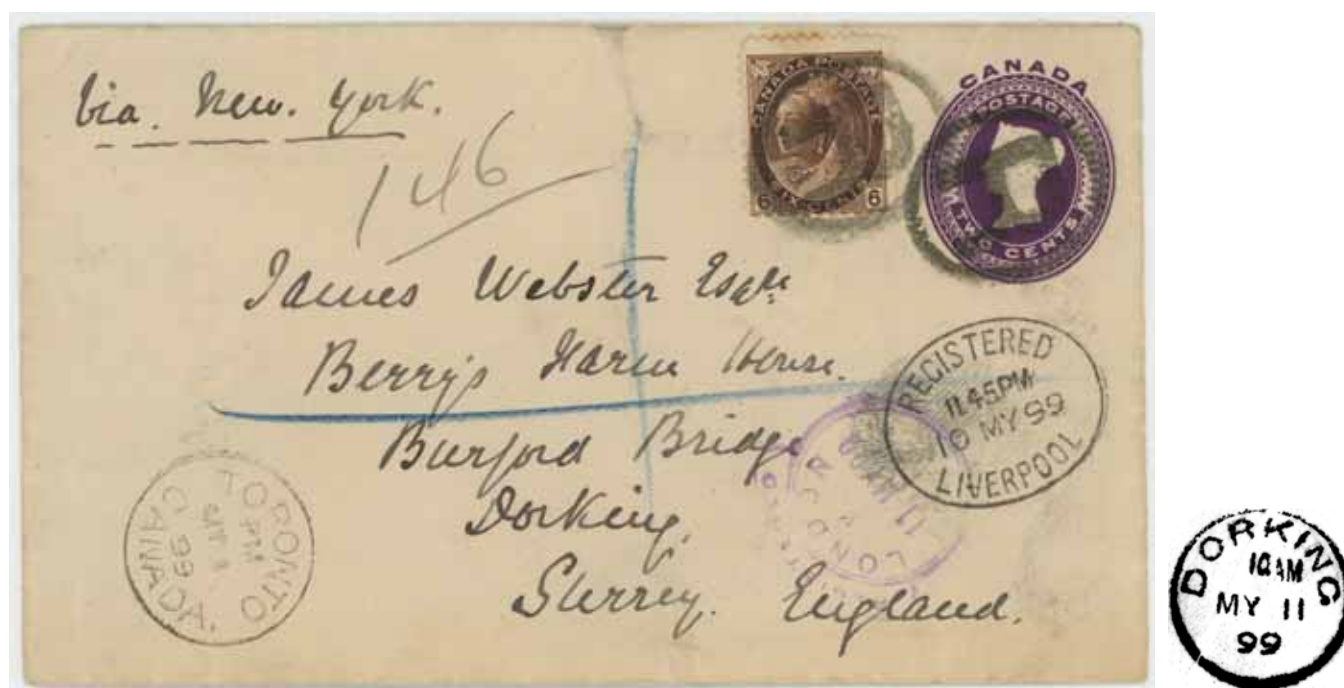 via. New. York.
146
CANADA POSTAGE
6 SIX CENTS 6
CANADA
POSTAGE
TWO CENTS
James Webster Esqre
Berry's Farm House.
Burford Bridge
Dorking.
Surrey. England.
REGISTERED
11.45PM
10 MY 99
LIVERPOOL
LONDON
11 MY 99
TORONTO
PM
99
CANADA.
DORKING
10 AM
MY 11
99